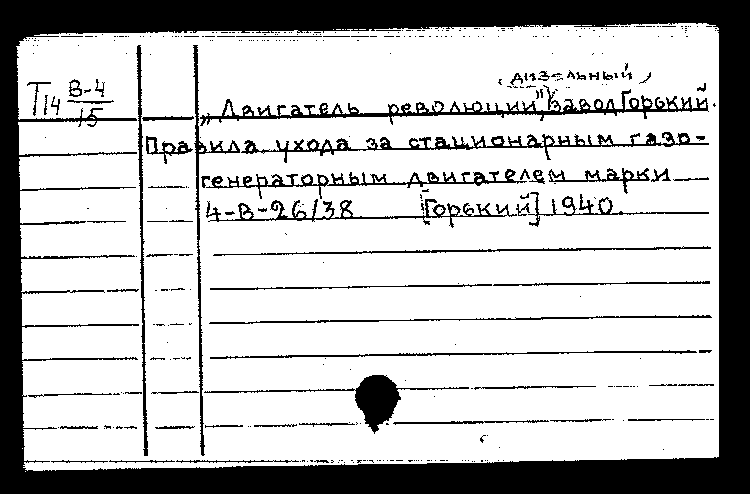 дизельный
Т14 В-4/15
„Двигатель революции", завод Горький.
Правила ухода за стационарным газо-
генераторным двигателем марки
4-В-26/38 [Горький] 1940.